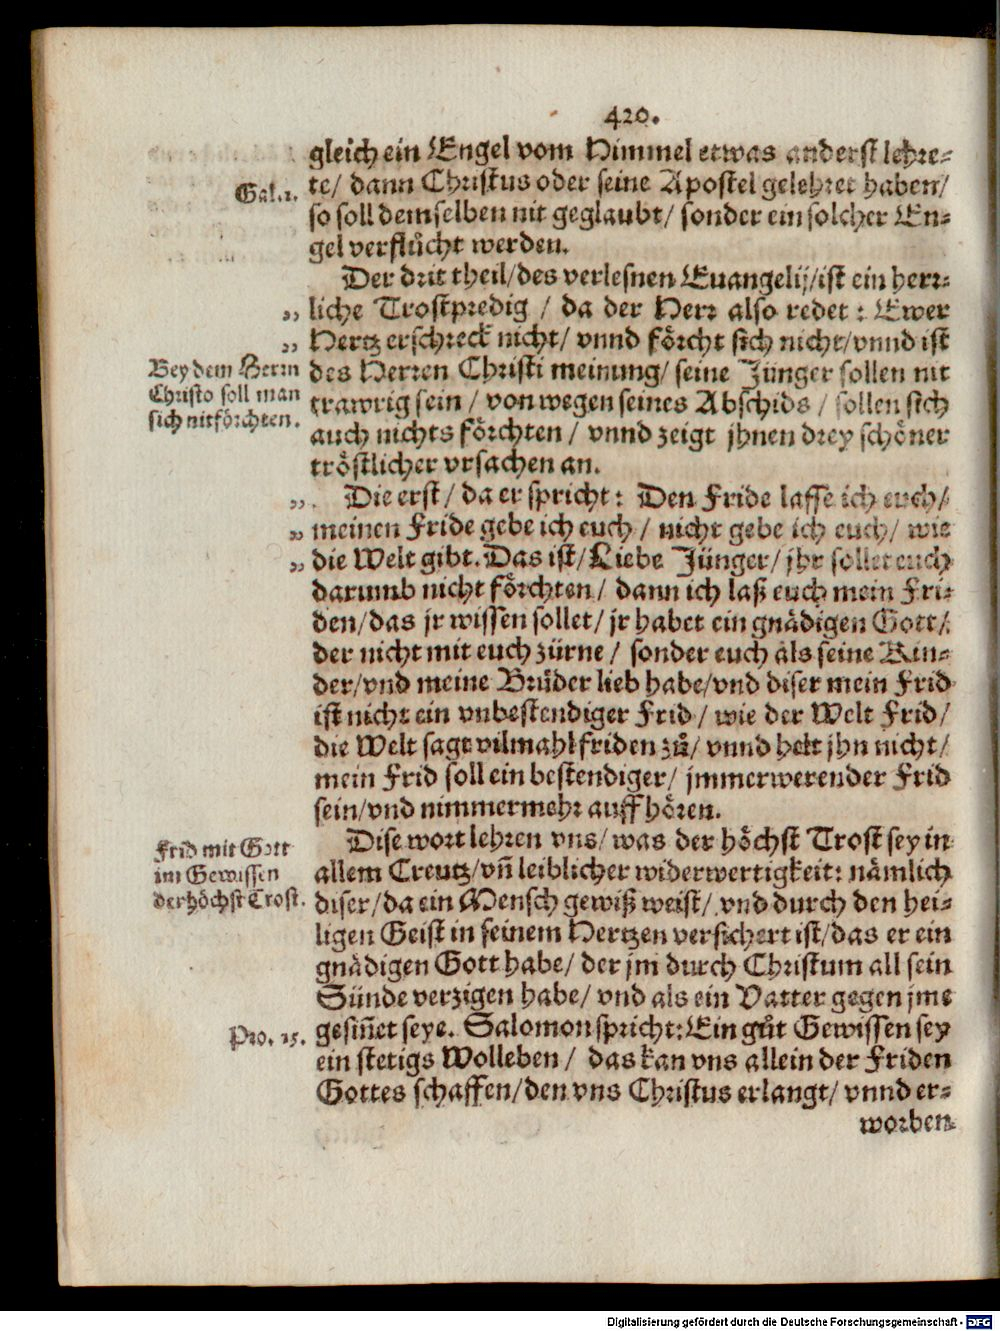 420.
gleich ein Engel vom Himmel etwas anderst lehre-
te/ dann Christus oder seine Apostel gelehret haben/
Gal. 1.
so soll demselben nit geglaubt/ sonder ein solcher En-
gel verflůcht werden.
Der drit theil/des verlesnen Euangelij/ist ein herr-
liche Trostpredig / da der Herr also redet: Ewer
„
Hertz erschreck nicht/ vnnd förcht sich nicht/vnnd ist
„
des Herren Christi meinung/ seine Jünger sollen nit
trawrig sein / von wegen seines Abschids / sollen sich
auch nichts förchten / vnnd zeigt jhnen drey schöner
tröstlicher vrsachen an.
Bey dem Herrn
Christo soll man
sich nit förchten.
Die erst/ da er spricht: Den Fride lasse ich euch/
„
meinen Fride gebe ich euch / nicht gebe ich euch/ wie
„
die Welt gibt. Das ist/ Liebe Jünger/ jhr sollet euch
„
darumb nicht förchten/ dann ich laß euch mein Fri-
den/das jr wissen sollet/ jr habet ein gnädigen Gott/
der nicht mit euch zürne / sonder euch als seine Kin-
der/vnd meine Brüder lieb habe/vnd diser mein Frid
ist nicht ein vnbestendiger Frid / wie der Welt Frid/
die Welt sagt vilmahl friden zů/ vnnd helt jhn nicht/
mein Frid soll ein bestendiger/ jmmerwerender Frid
sein/vnd nimmermehr auffhören.
Dise wort lehren vns/ was der höchst Trost sey in
allem Creutz/vñ leiblicher widerwertigkeit: nämlich
diser/da ein Mensch gewiß weist/ vnd durch den hei-
ligen Geist in seinem Hertzen versichert ist/das er ein
gnädigen Gott habe/ der jm durch Christum all sein
Sünde verzigen habe/ vnd als ein Vatter gegen jme
gesiñet seye. Salomon spricht: Ein gůt Gewissen sey
ein stetigs Wolleben / das kan vns allein der Friden
Gottes schaffen/den vns Christus erlangt/ vnnd er-
Frid mit Gott
im Gewissen
der höchst Trost.
Pro. 15.
worben
Digitalisierung gefördert durch die Deutsche Forschungsgemeinschaft - DFG